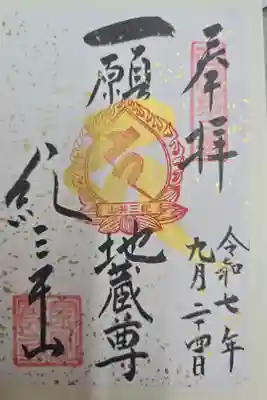 奉拝
令和七年
九月二十四日
一願
地蔵尊
紀三井山